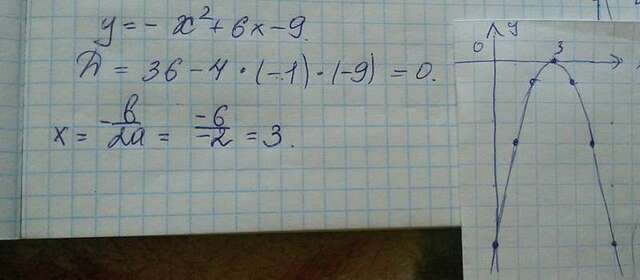 y = - x² + 6x - 9.
D = 36 - 4 · (-1) · (-9) = 0.
x = -b/2a = -6/-2 = 3.
y
0
3